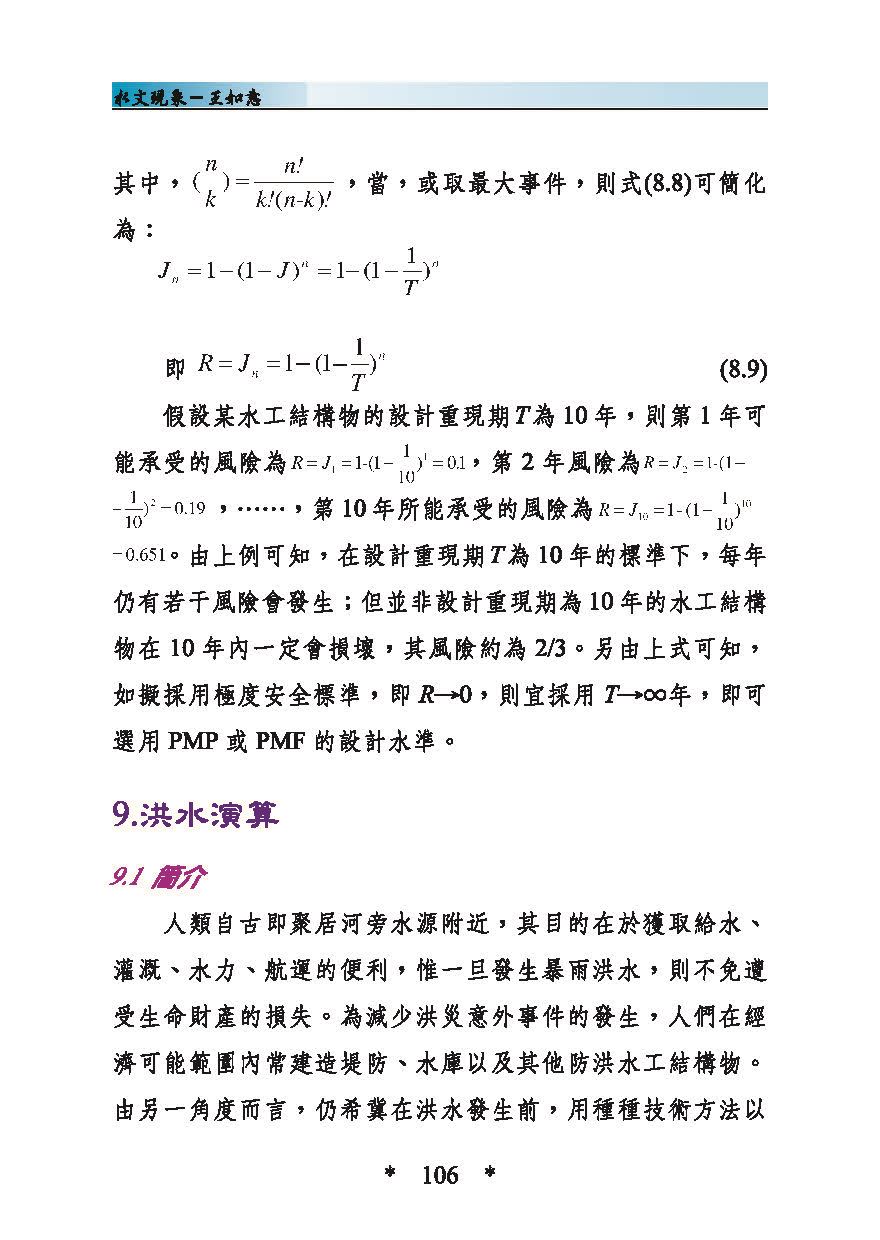 水文現象－王如意
其中，( n k ) = n! / k!(n-k)! ，當，或取最大事件，則式(8.8)可簡化
為：
J_n = 1 − (1 − J)^n = 1 − (1 − 1/T)^n
即 R = J_n = 1 − (1 − 1/T)^n (8.9)
假設某水工結構物的設計重現期 T 為 10 年，則第 1 年可
能承受的風險為 R = J_1 = 1-(1− 1/10)^1 = 0.1，第 2 年風險為 R = J_2 = 1-(1−
− 1/10)^2 = 0.19 ，……，第 10 年所能承受的風險為 R = J_10 = 1-(1− 1/10)^10
= 0.651。由上例可知，在設計重現期 T 為 10 年的標準下，每年
仍有若干風險會發生；但並非設計重現期為 10 年的水工結構
物在 10 年內一定會損壞，其風險約為 2/3。另由上式可知，
如擬採用極度安全標準，即 R→0，則宜採用 T→∞年，即可
選用 PMP 或 PMF 的設計水準。
9.洪水演算
9.1 簡介
人類自古即聚居河旁水源附近，其目的在於獲取給水、
灌溉、水力、航運的便利，惟一旦發生暴雨洪水，則不免遭
受生命財產的損失。為減少洪災意外事件的發生，人們在經
濟可能範圍內常建造堤防、水庫以及其他防洪水工結構物。
由另一角度而言，仍希冀在洪水發生前，用種種技術方法以
* 106 *